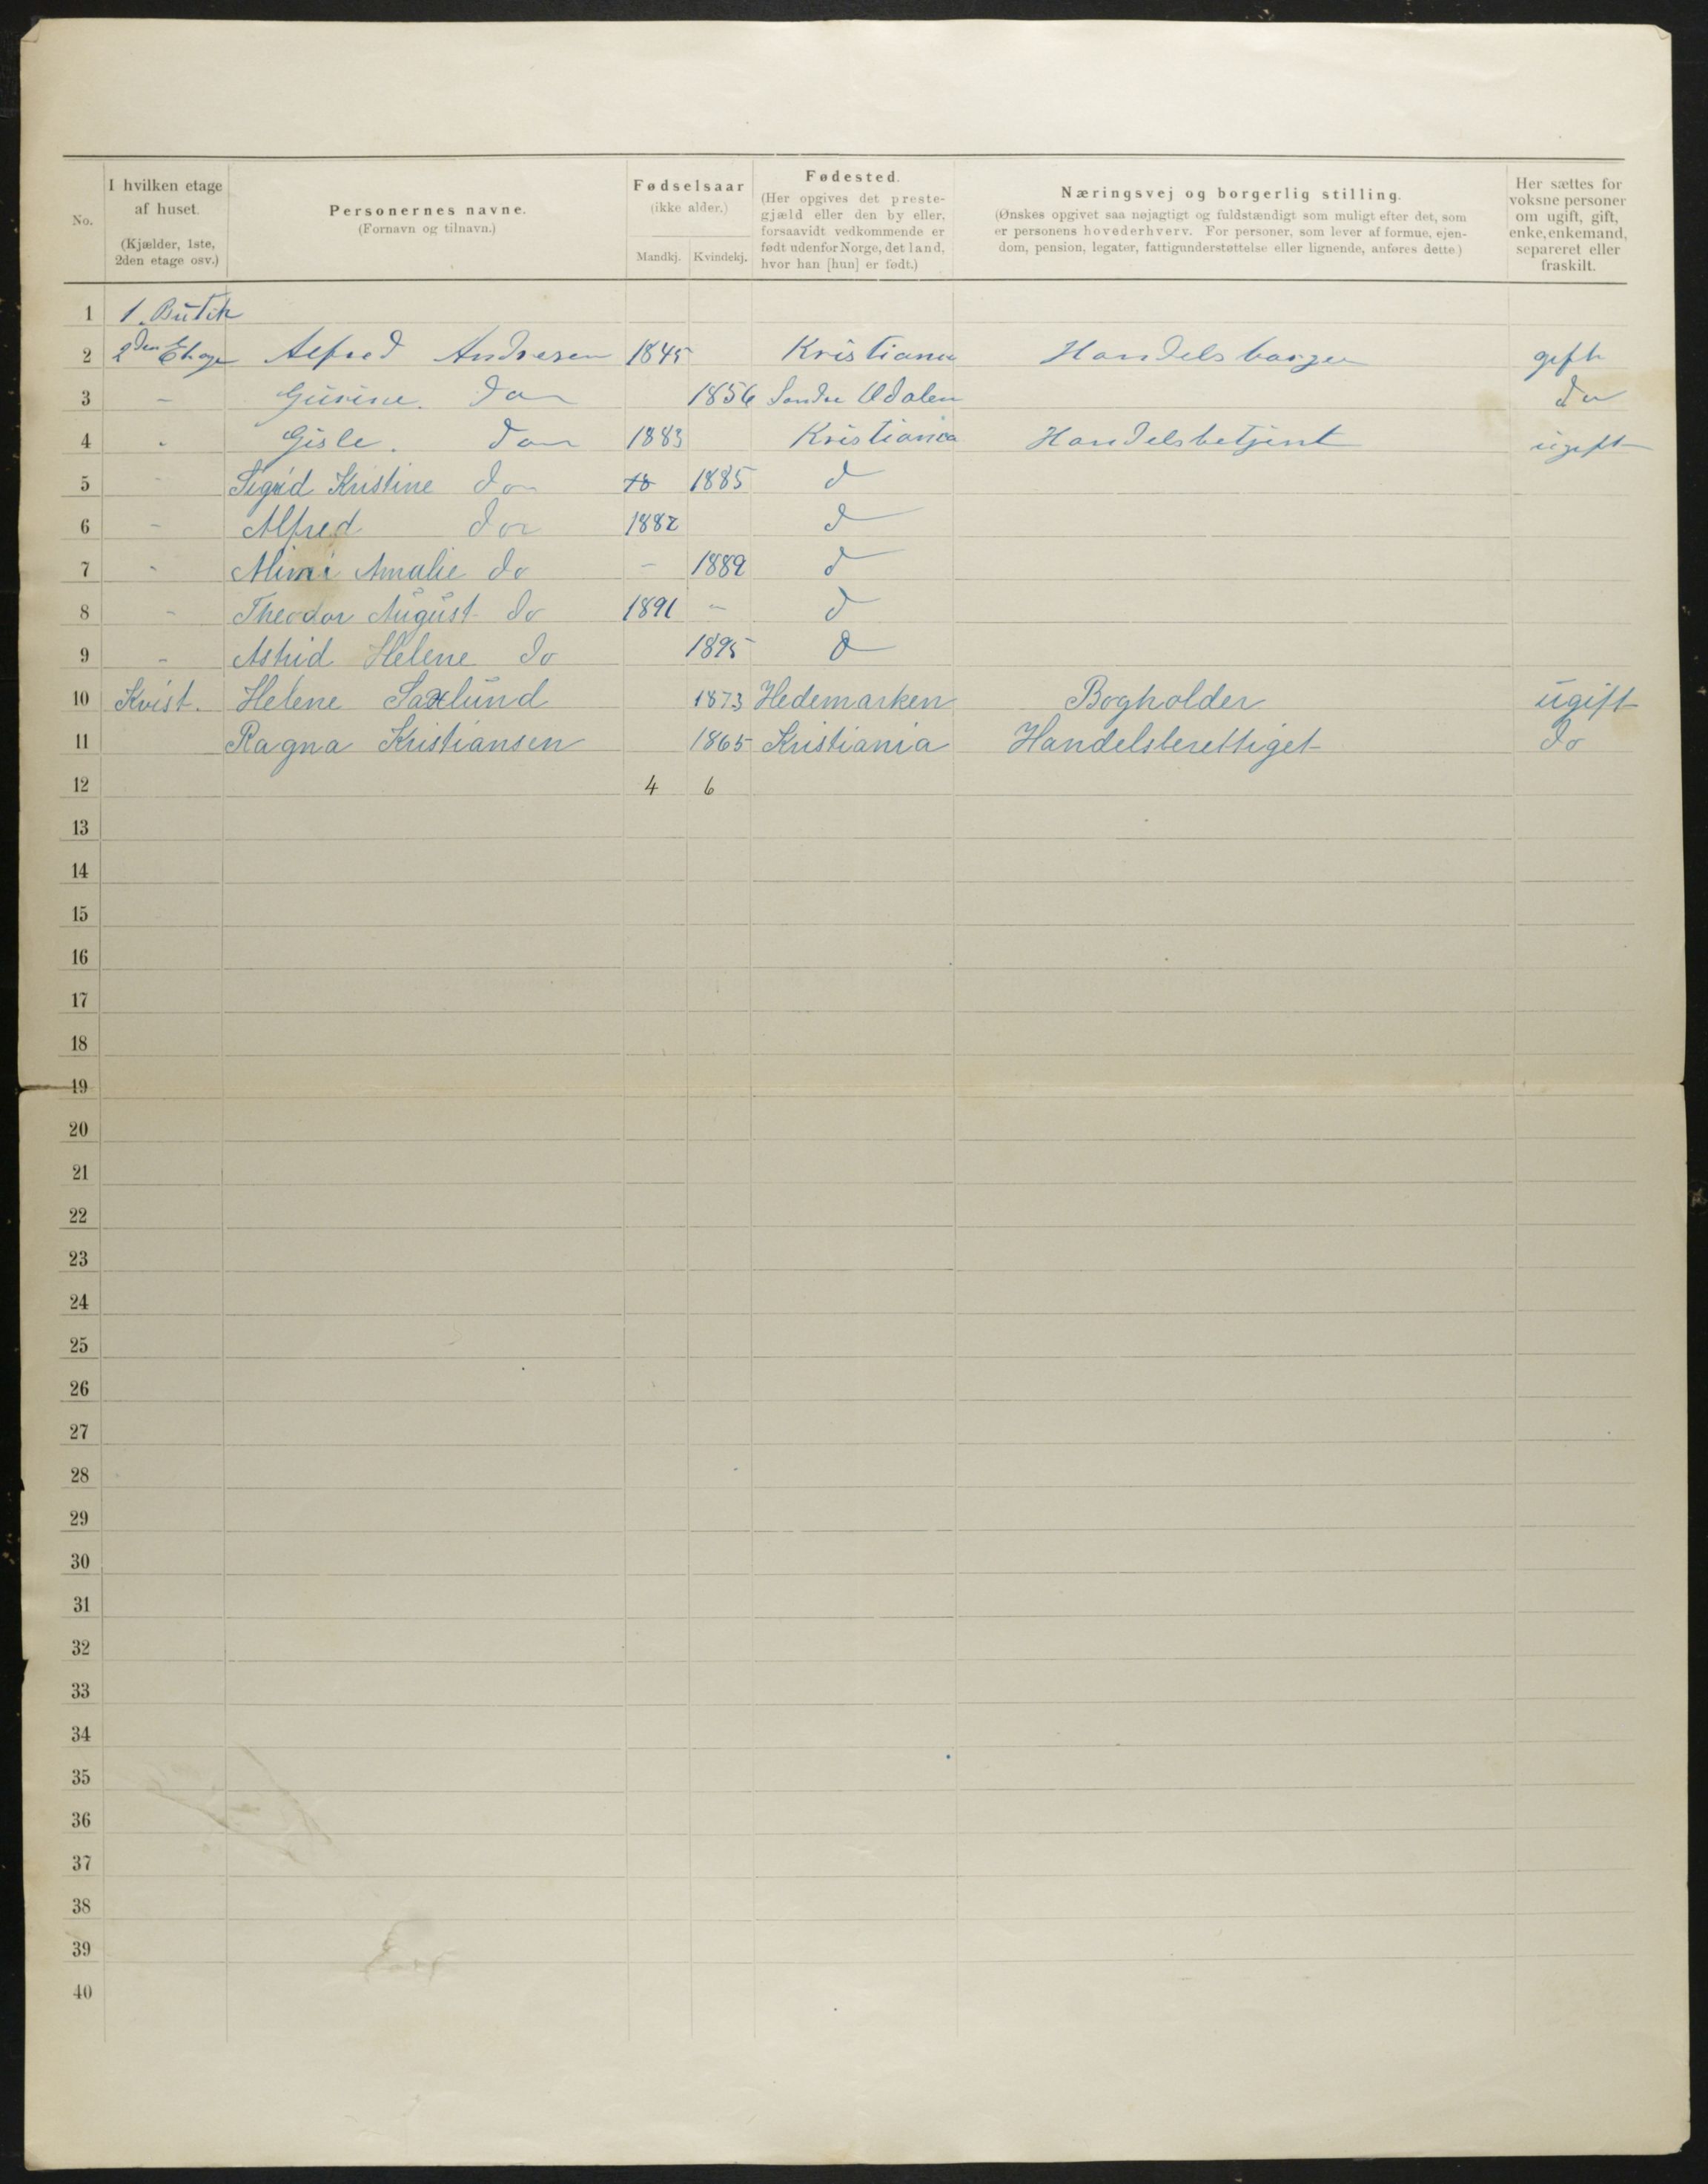 No.
I hvilken etage af huset.
(Kjælder, 1ste, 2den etage osv.)
Personernes navne.
(Fornavn og tilnavn.)
Fødselsaar
(ikke alder.)
Mandkj. Kvindekj.
Fødested.
(Her opgives det preste-
gjæld eller den by eller,
forsaavidt vedkommende er
født udenfor Norge, det land,
hvor han [hun] er født.)
Næringsvej og borgerlig stilling.
(Ønskes opgivet saa nøjagtigt og fuldstændigt som muligt efter det, som
er personens hovederhverv. For personer, som lever af formue, ejen-
dom, pension, legater, fattigunderstøttelse eller lignende, anføres dette.)
Her sættes for
voksne personer
om ugift, gift,
enke, enkemand,
separeret eller
fraskilt.
1 1. Butik
2 2den Etage Alfred Andresen 1845 Kristiania Handelsborger gift
3 - Gurine. do 1856 Søndre Odalen do
4 - Gisle. do 1883 Kristiania Handelsbetjent ugift
5 - Sigrid Kristine do 1885 d
6 - Alfred do 1887 d
7 - Mimi Amalie do - 1889 d
8 - Theodor August do 1891 - d
9 - Astrid Helene do 1895 d
10 Kvist. Helene Saxlund 1873 Hedemarken Bogholder ugift
11 Ragna Kristiansen 1865 Kristiania Handelsberettiget do
12 4 6
13
14
15
16
17
18
19
20
21
22
23
24
25
26
27
28
29
30
31
32
33
34
35
36
37
38
39
40